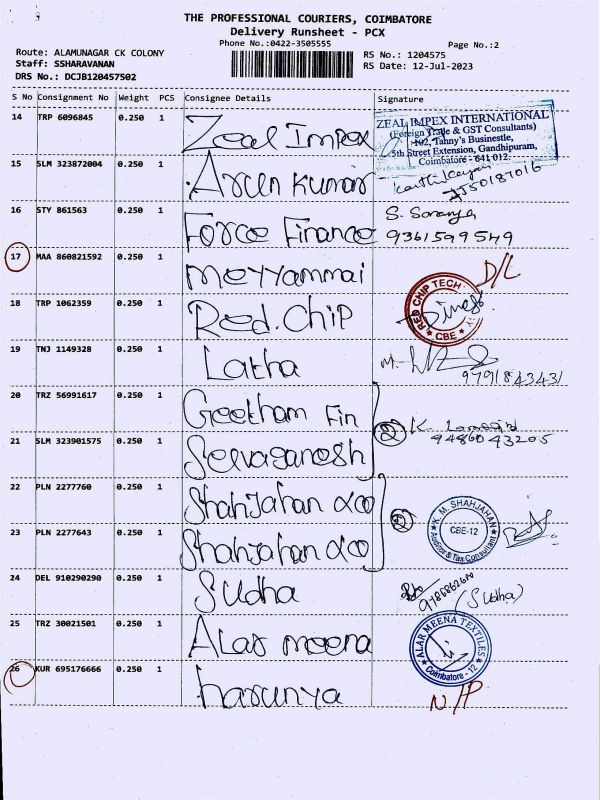 THE PROFESSIONAL COURIERS, COIMBATORE
Delivery Runsheet - PCX
Phone No.:0422-3505555
Page No.:2
Route: ALAMUNAGAR CK COLONY
Staff: SSHARAVANAN
DRS No.: DCJB120457502
RS No.: 1204575
RS Date: 12-Jul-2023
S No Consignment No Weight PCS Consignee Details Signature
14 TRP 6096845 0.250 1 Zeal Impex
ZEAL IMPEX INTERNATIONAL
(Foreign Trade & GST Consultants)
102, Tanny's Businestle,
5th Street Extension, Gandhipuram,
Coimbatore - 641 012.
15 SLM 323872004 0.250 1 Arun Kumar
Karthikeyan
16 STY 861563 0.250 1 Force Finance
S. Saranya
9361599549
17 MAA 860821592 0.250 1 Meyyammai D/L
18 TRP 1062359 0.250 1 Red. Chip
RED CHIP TECH
CBE
19 TNJ 1149328 0.250 1 Latha
9791843431
20 TRZ 56991617 0.250 1 Geetham Fin
21 SLM 323901575 0.250 1 Selvaganesh
2 K.
9486043205
22 PLN 2277760 0.250 1 Shahjahan &co
23 PLN 2277643 0.250 1 Shahjahan &co
2
K. M. SHAHJAHAN
CBE-12
Auditor & Tax Consultant
24 DEL 910290290 0.250 1 Sudha
(Sudha)
25 TRZ 30021501 0.250 1 Alar meena
ALAR MEENA TEXTILES
Coimbatore - 12
26 KUR 695176666 0.250 1 harunya N/P